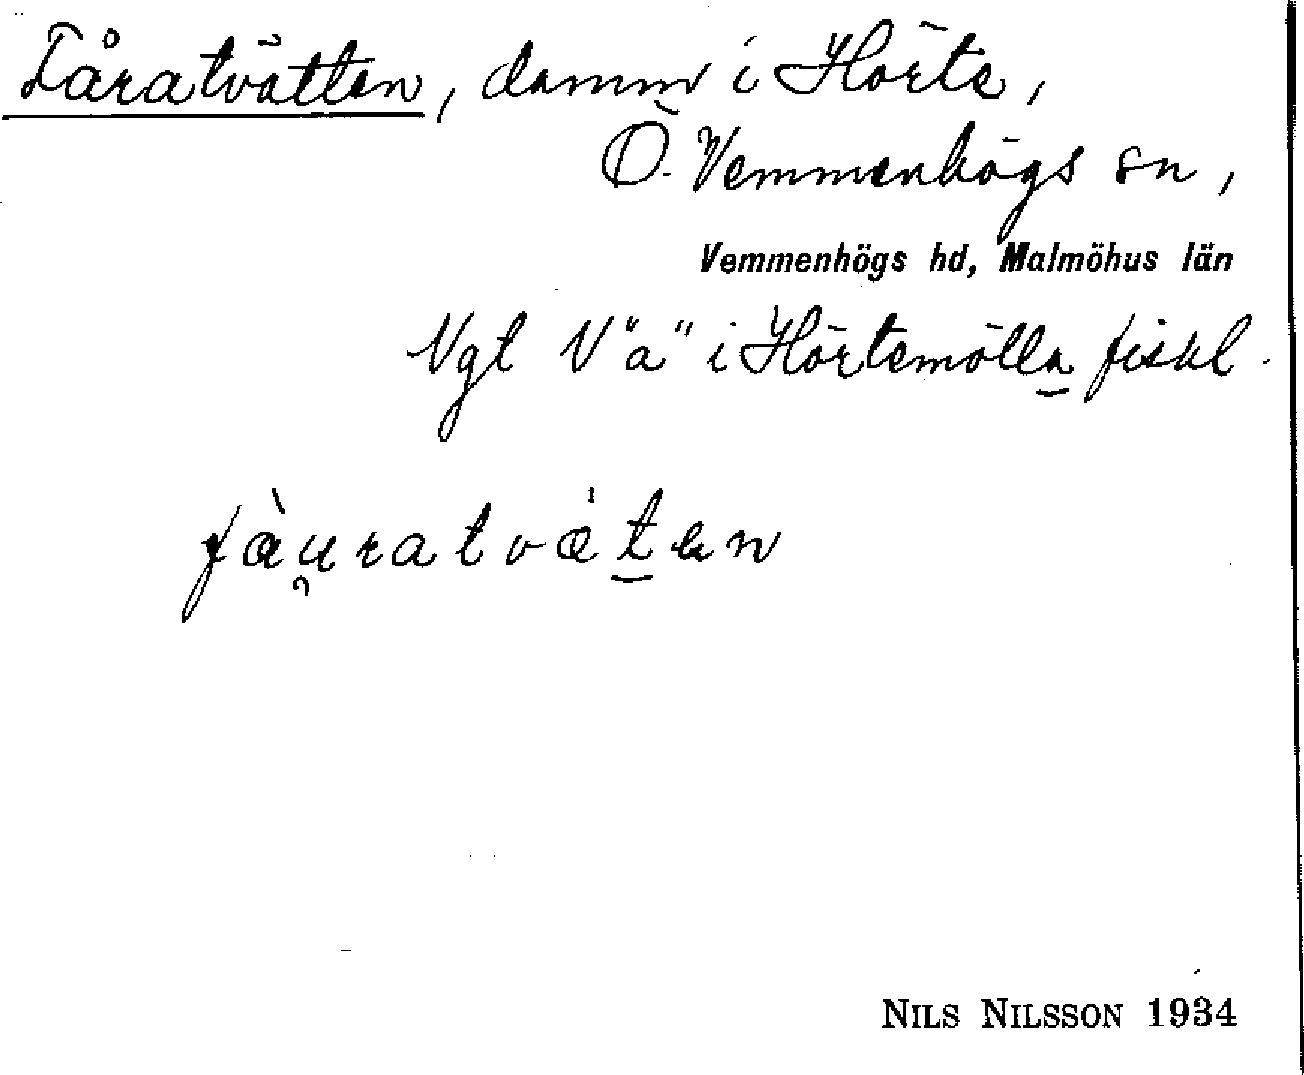 Fåratvätten, damm i Hörte,
Ö. Vemmenhögs sn,
Vemmenhögs hd, Malmöhus län
Vgt V "a" i Hörtemölla fiskl.
fàu̯ratvät̲en
NILS NILSSON 1934